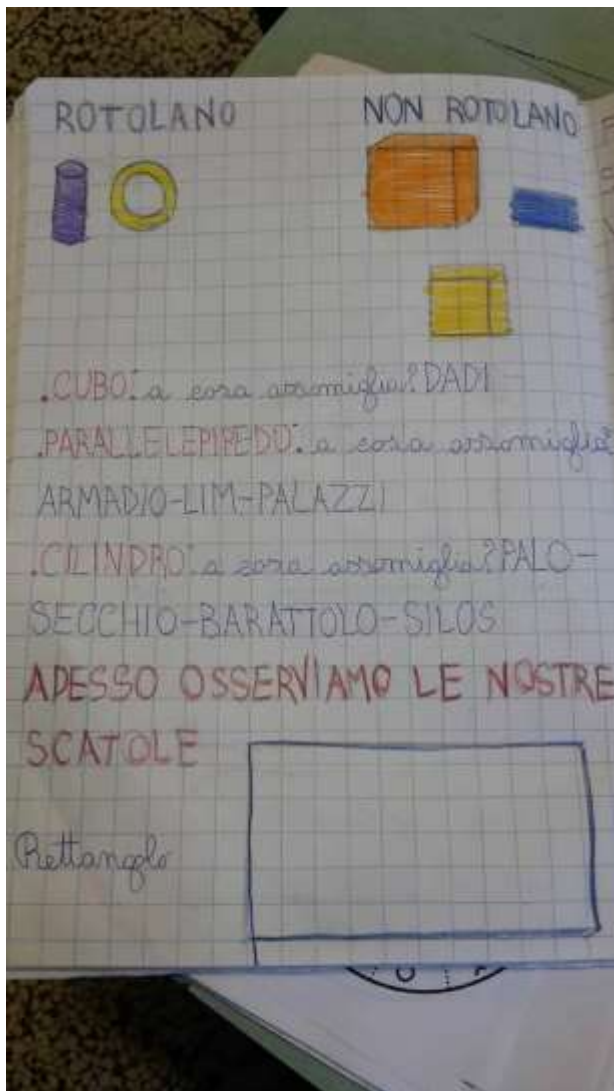 ROTOLANO
NON ROTOLANO
.CUBO: a cosa assomiglia? DADI
.PARALLELEPIPEDO: a cosa assomiglia?
ARMADIO-LIM-PALAZZI
.CILINDRO: a cosa assomiglia? PALO-
SECCHIO-BARATTOLO-SILOS
ADESSO OSSERVIAMO LE NOSTRE
SCATOLE
Rettangolo